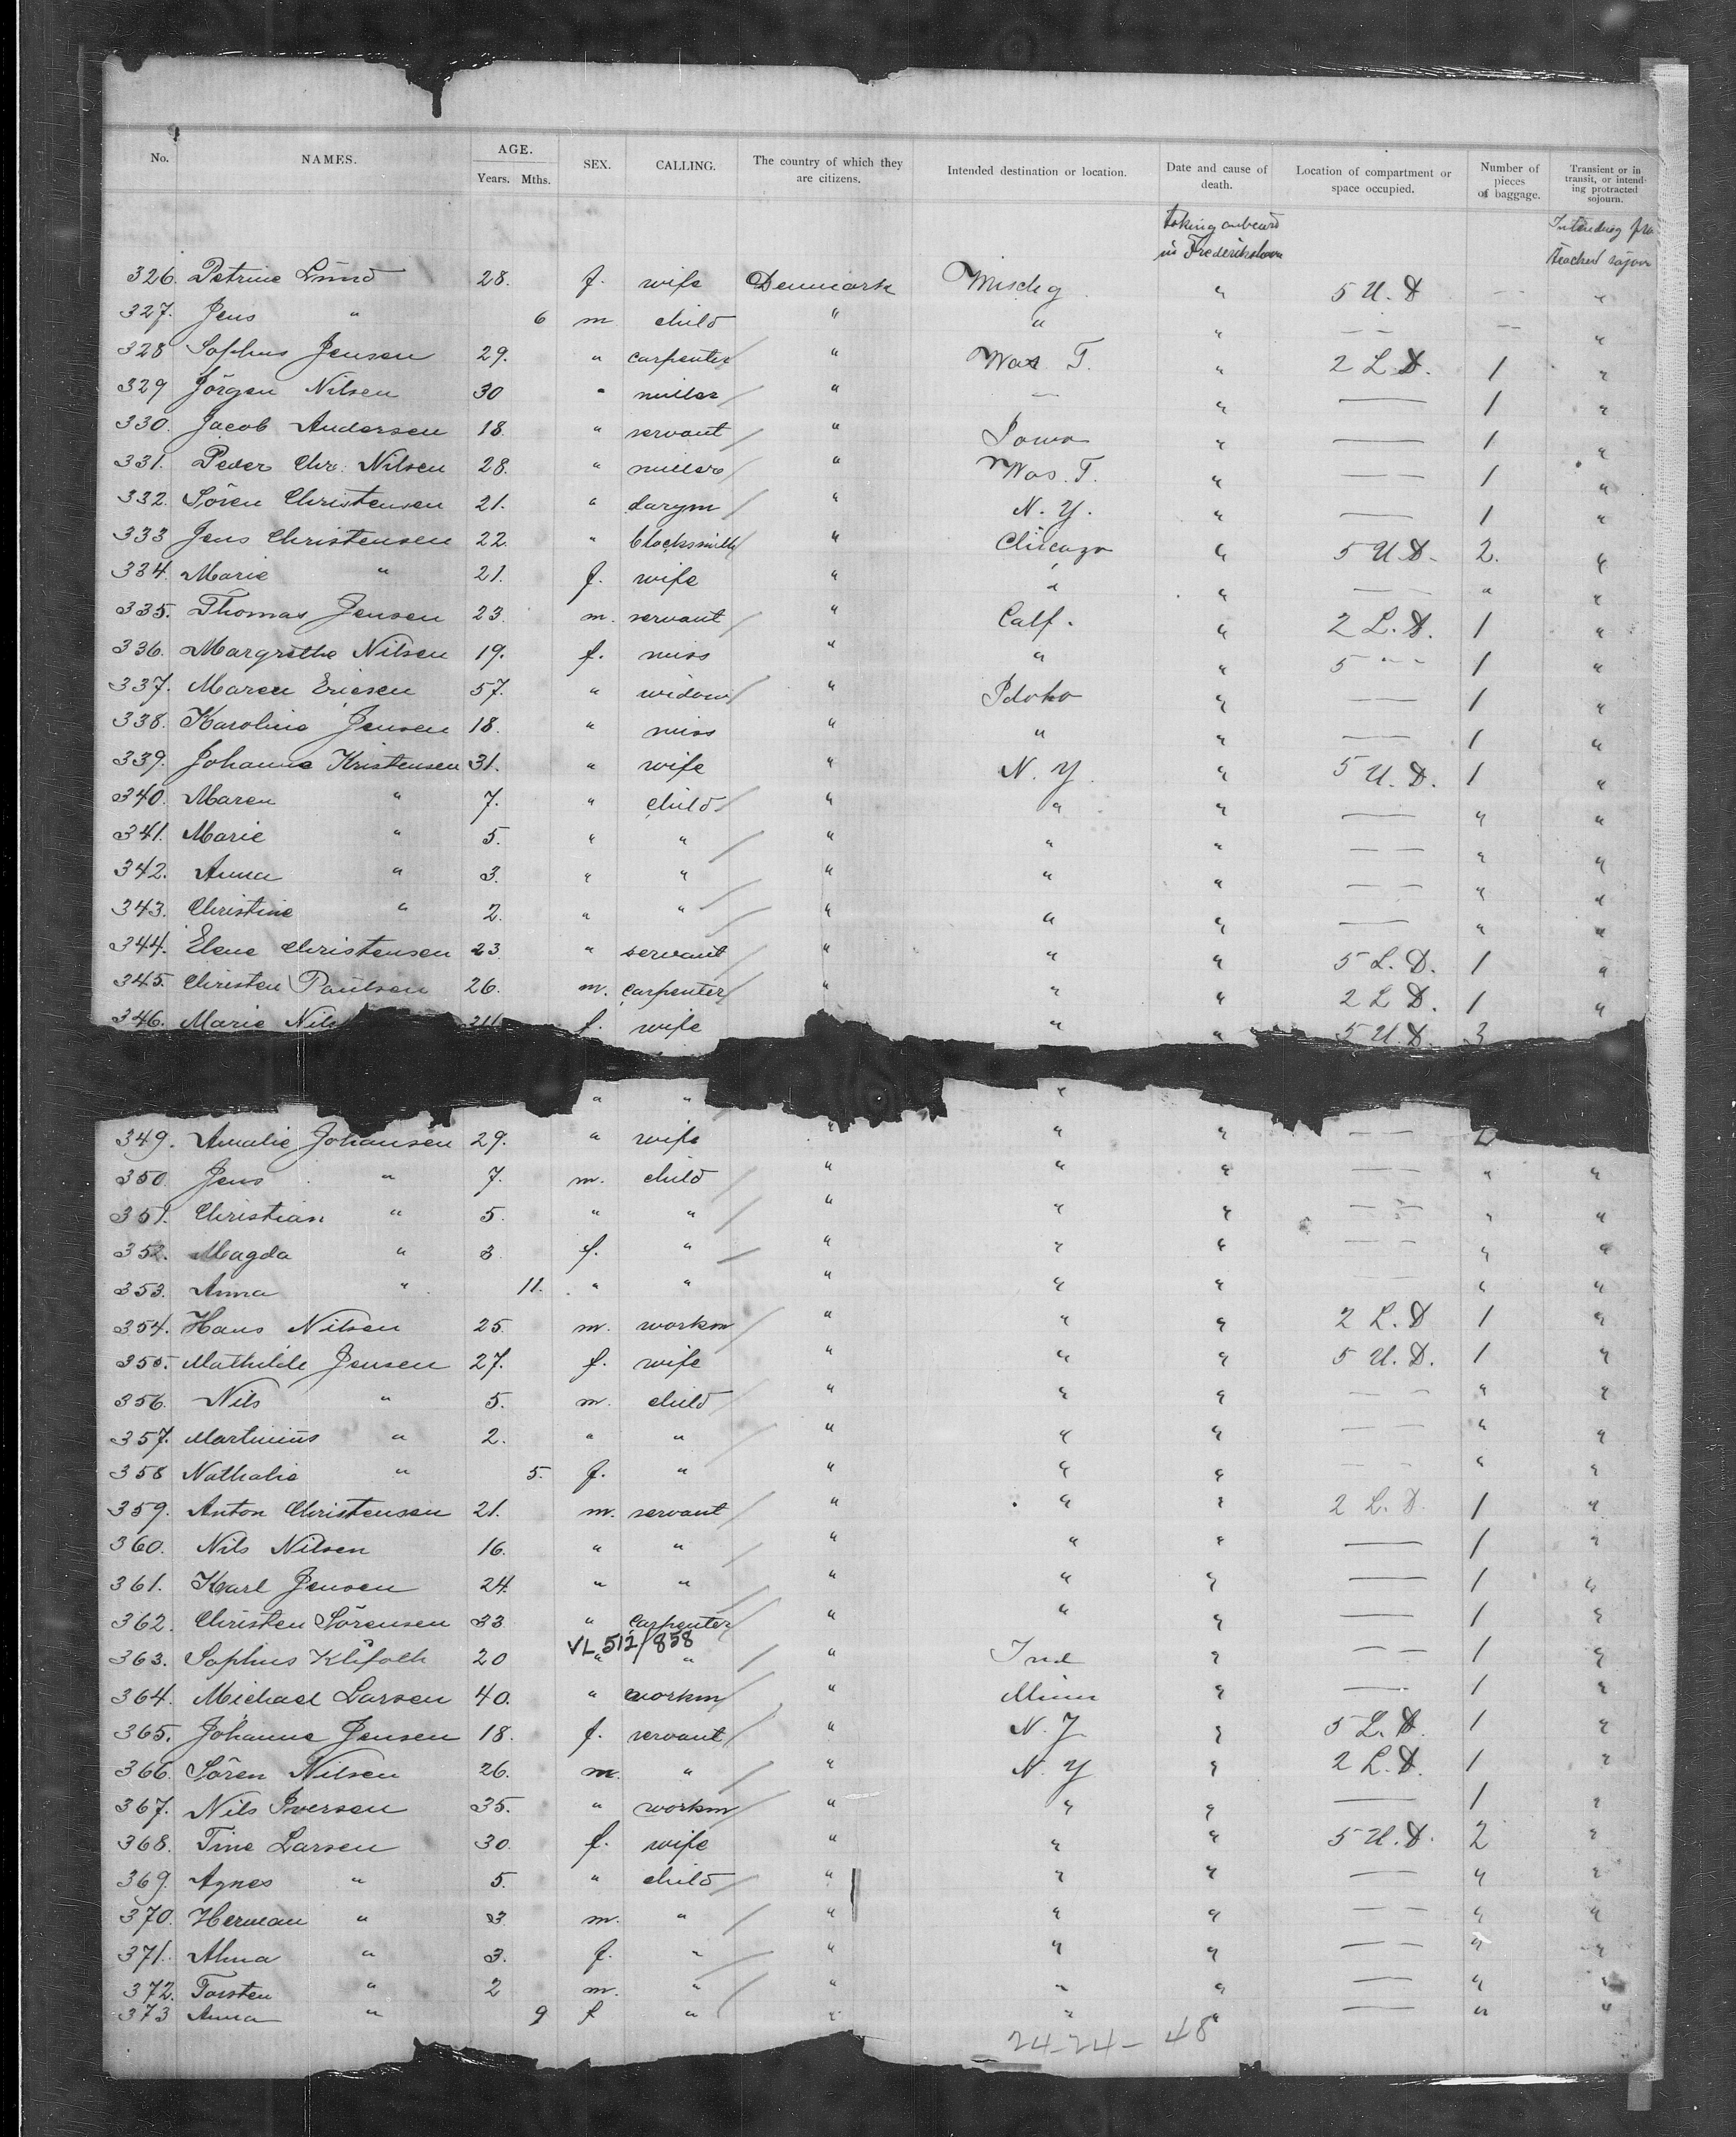 No. NAMES. AGE. Years. Mths. SEX. CALLING. The country of which they are citizens. Intended destination or location. Date and cause of death. Location of compartment or space occupied. Number of pieces of baggage. Transient or in transit, or intending protracted sojourn.
taking onboard Intending pro
in Frederikshavn tracted sojour
326. Petrine Lund 28. f. wife Denmark Mischg " 5 U. D — "
327. Jens " 6 m child " " " — — — "
328 Sophus Jensen 29. " carpenter " Was T. " 2 L D. 1 "
329 Jörgen Nilsen 30 " miller " — " — 1 "
330. Jacob Andersen 18. " servant " Iowa " — 1 "
331. Peder Chr. Nilsen 28. " miller " Was. T. " — 1 "
332. Sören Christensen 21. " darym " N. Y. " — 1 "
333 Jens Christensen 22. " blacksmith " Chicago " 5 U. D. 2. "
334. Marie " 21. f. wife " " " — " "
335. Thomas Jensen 23. m. servant " Calf. " 2 L. D. 1 "
336. Margrethe Nilsen 19. f. miss " " " 5 " " 1 "
337. Maren Ericsen 57. " widow " Idoho " — 1 "
338. Karoline Jensen 18. " miss " " " — 1 "
339. Johanne Kristensen 31. " wife " N. Y. " 5 U. D. 1 "
340. Maren " 7. " child " " " — " "
341. Marie " 5. " " " " " — — " "
342. Anna " 3. " " " " " — — " "
343. Christine " 2. " " " " " — " "
344. Elene Christensen 23 " servant " " " 5 L. D. 1 "
345. Christen Paulsen 26. m. carpenter " " " 2 L D. 1 "
346. Marie Nils f. wife " " 5 U. D. 3
" " "
349. Amalie Johansen 29. " wife " " " — —
350. Jens " 7. m. child " " " — — " "
351. Christian " 5. " " " " " — — " "
352. Magda " 3. f. " " " " — — " "
353. Anna " 11. " " " " " — — " "
354. Hans Nilsen 25. m. workm " " " 2 L. D 1 "
355. Mathilde Jensen 27. f. wife " " " 5 U. D. 1 "
356. Nils " 5. m. child " " " — — " "
357. Martinius " 2. " " " " " — — " "
358 Nathalie " 5. f. " " " " — — " "
359. Anton Christensen 21. m. servant " " " 2 L. D. 1 "
360. Nils Nilsen 16. " " " " " — 1 "
361. Karl Jensen 24. " " " " " — 1 "
362. Christen Sörensen 33 " carpenter " " " — 1 "
VL 512/858
363. Sophus 20 " " " Ind " — — 1 "
364. Michael Larsen 40. " workm " Minn " — 1 "
365. Johanne Jensen 18. f. servant " N. J " 5 L. D. 1 "
366. Sören Nilsen 26. m. " " N. Y " 2 L. D. 1 "
367. Nils Iversen 35. " workm " " " — 1 "
368. Tine Larsen 30. f. wife " " " 5 U. D. 2 "
369. Agnes " 5. " child " " " — — " "
370. Herman " 3 m. " " " " — — " "
371. Alma " 3. f. " " " " — — " "
372. Torsten " 2 m. " " " " — " "
373 Anna " 9 f " " " " — " "
24-24- 48